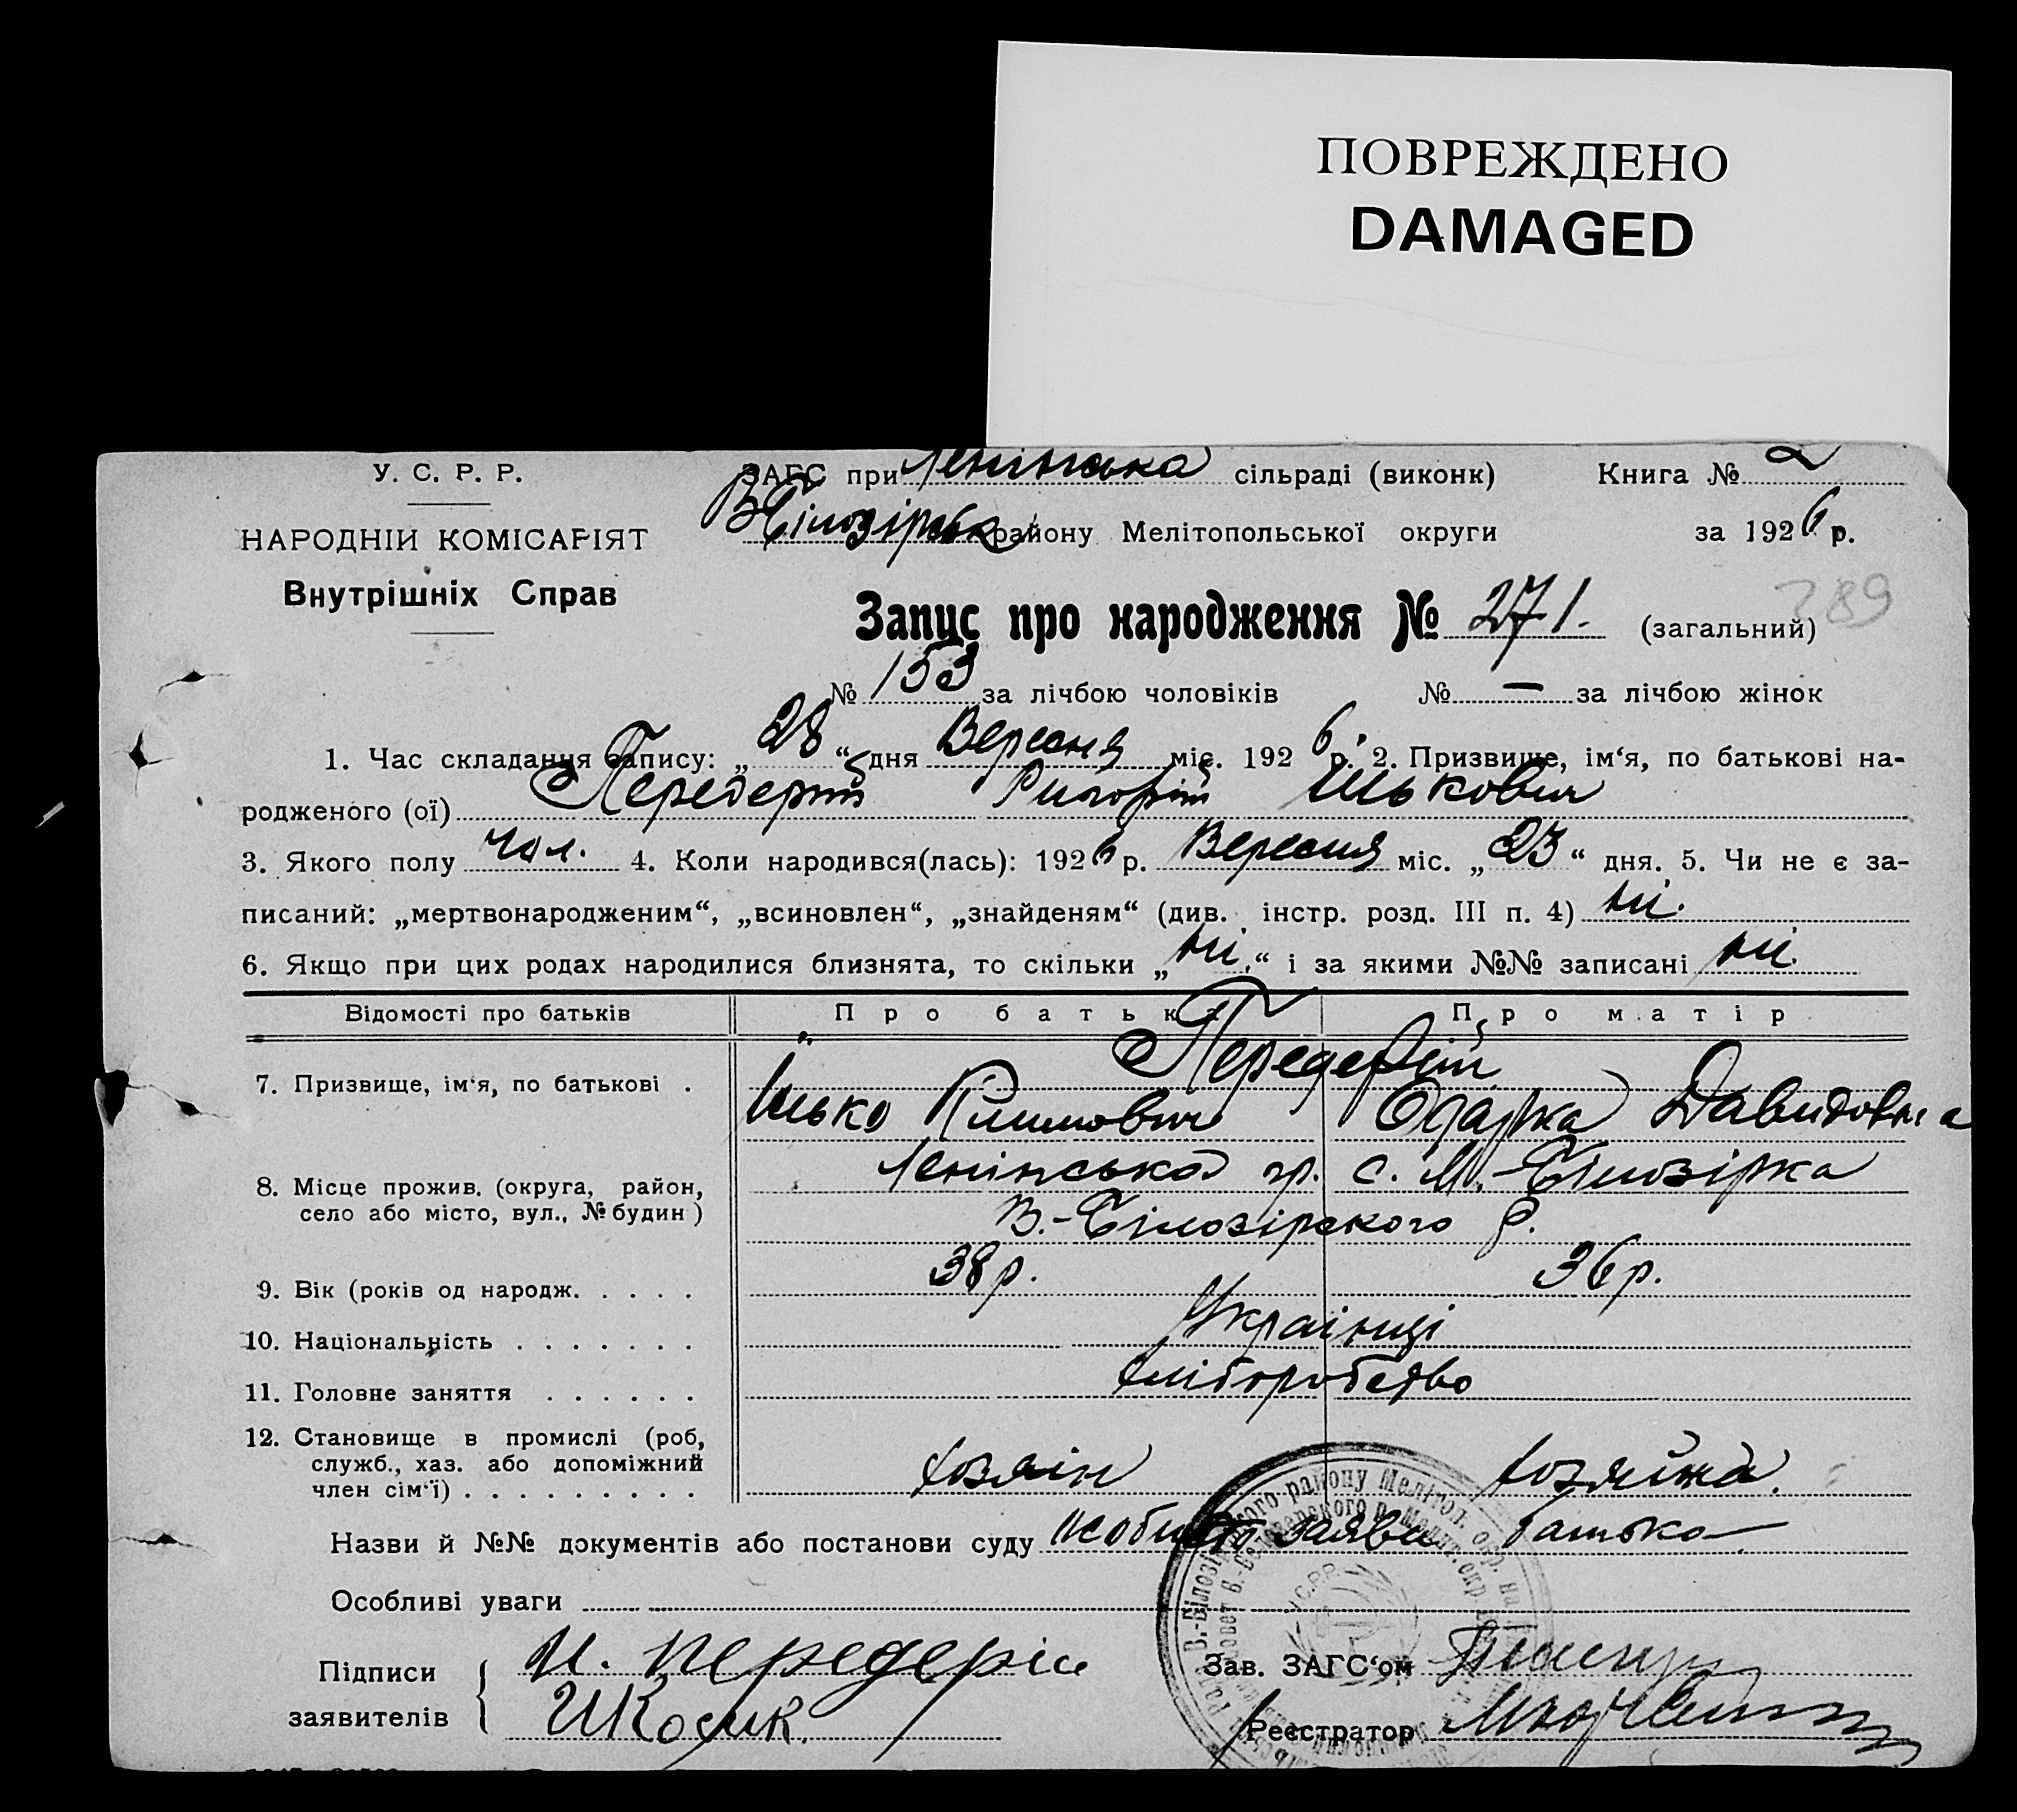 ПОВРЕЖДЕНО
DAMAGED
У. С. Р. Р.
ЗАГС при Ленінська сільраді (виконк) Книга № 2
НАРОДНІЙ КОМІСАРІЯТ
В Білозірськ району Мелітопольської округи за 1926 р.
Внутрішніх Справ
Запис про народження № 271. (загальний) 289
№ 153 за лічбою чоловіків № — за лічбою жінок
1. Час складання запису: „28“ дня Вересня міс. 1926 р. 2. Призвище, ім‘я, по батькові на-
родженого (ої) Передерій Григорій Ількович
3. Якого полу чол. 4. Коли народився(лась): 1926 р. Вересня міс. „23“ дня. 5. Чи не є за-
писаний: „мертвонародженим“, „всиновлен“, „знайденям“ (див. інстр. розд. III п. 4) ні.
6. Якщо при цих родах народилися близнята, то скільки „ні.“ і за якими №№ записані ні.
Відомості про батьків Про батька Про матір
Передерій
7. Призвище, ім‘я, по батькові .
Ілько Климович Одарка Давидовна
8. Місце прожив. (округа, район,
село або місто, вул., № будин)
Ленінська гр. с. М.-Білозірка
В.-Білозірского р.
9. Вік (років од народж. . . . . 38 р. 36 р.
10. Національність . . . . . . . Українці
11. Головне заняття . . . . . . хліборобство
12. Становище в промислі (роб,
служб., хаз. або допоміжний
член сім‘ї) . . . . . . . . . хозяін хозяйка.
Назви й №№ документів або постанови суду особиста заява батька
Особливі уваги
Підписи
заявителів
И. Передерій
Зав. ЗАГС‘ом
Реєстратор